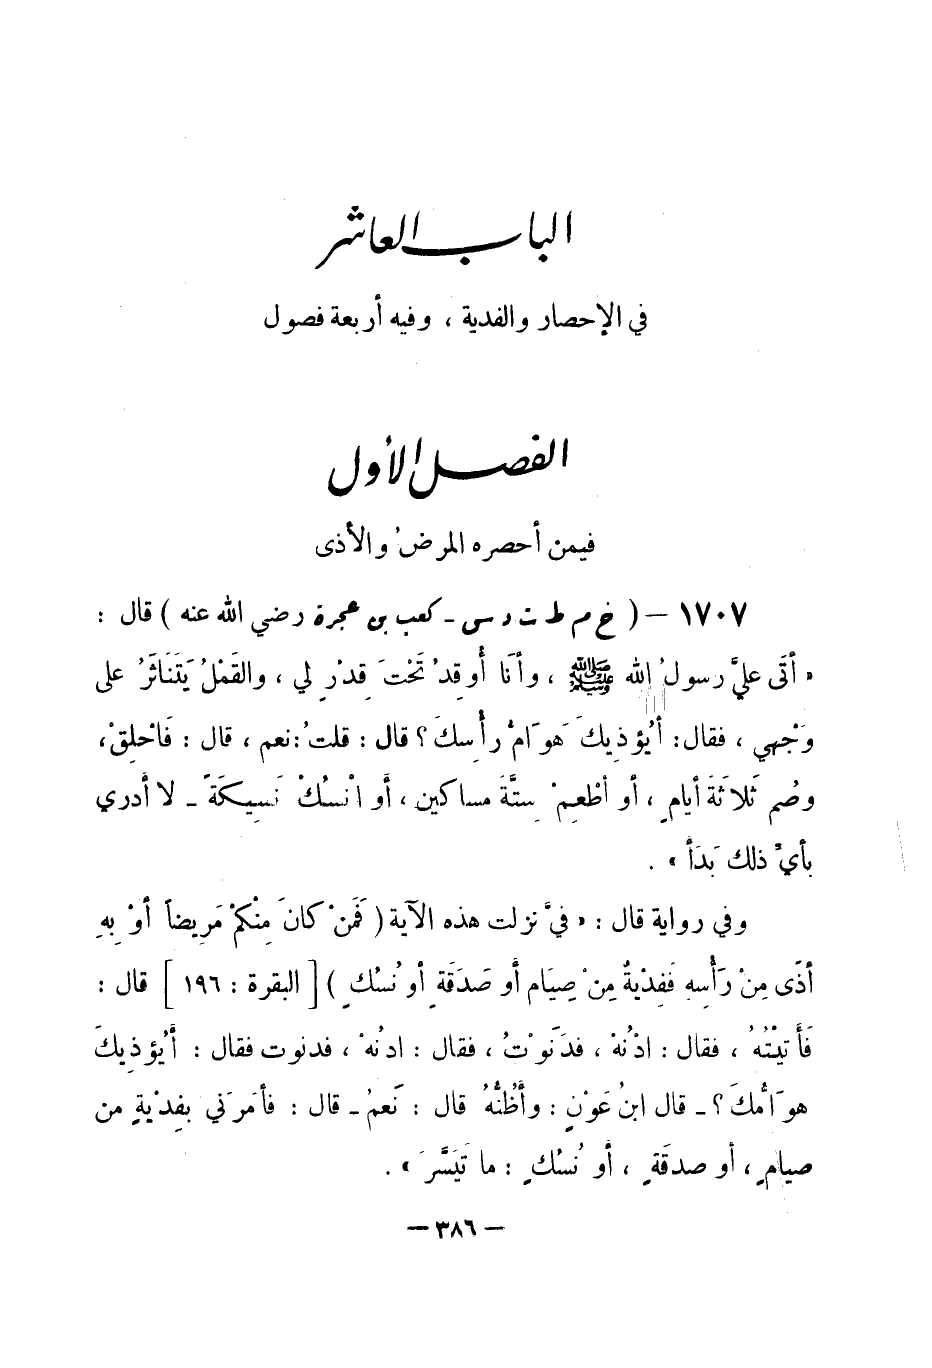 الباب العاشر
في الإحصار والفدية ، وفيه أربعة فصول
الفصل الأول
فيمن أحصره المرضُ والأذى
١٧٠٧ – ( خ م ط ت د س - كعب بن عجرة رضي الله عنه ) قال :
« أتَى عليَّ رسولُ الله ﷺ ، وأنَا أُوقِدُ تَحْتَ قِدْرٍ لي ، والقَمْلُ يَتَنَاثَرُ على
وَجْهي ، فقال : أيُؤذِيكَ هَوَامُّ رأسِكَ ؟ قال : قلتُ : نعم ، قال : فَاحْلِقْ ،
وصُم ثَلاثَةَ أيامٍ ، أو أطْعِمْ سِتَّةَ مساكين ، أو انْسُكْ نَسِيكَةً - لا أدري
بأيِّ ذلك بَدَأَ » .
وفي رواية قال : « فيَّ نزلت هذه الآية ( فَمَنْ كانَ مِنْكمْ مَرِيضاً أوْ بِهِ
أذًى مِنْ رَأْسِهِ فَفِدْيةٌ مِنْ صِيَامٍ أو صَدَقَةٍ أو نُسُكٍ ) [ البقرة : ١٩٦ ] قال :
فَأتَيْتُهُ ، فقال : ادْنُهْ ، فدَنَوْتُ ، فقال : ادنُهْ ، فدنوت فقال : أيُؤذيكَ
هوَامُّكَ ؟ - قال ابنُ عَوْنٍ : وأظُنُّهُ قال : نَعمْ - قال : فأمرَني بفِدْيةٍ من
صيامٍ ، أو صدقَةٍ ، أو نُسُكٍ : ما تَيَسَّرَ » .
– ٣٨٦ –